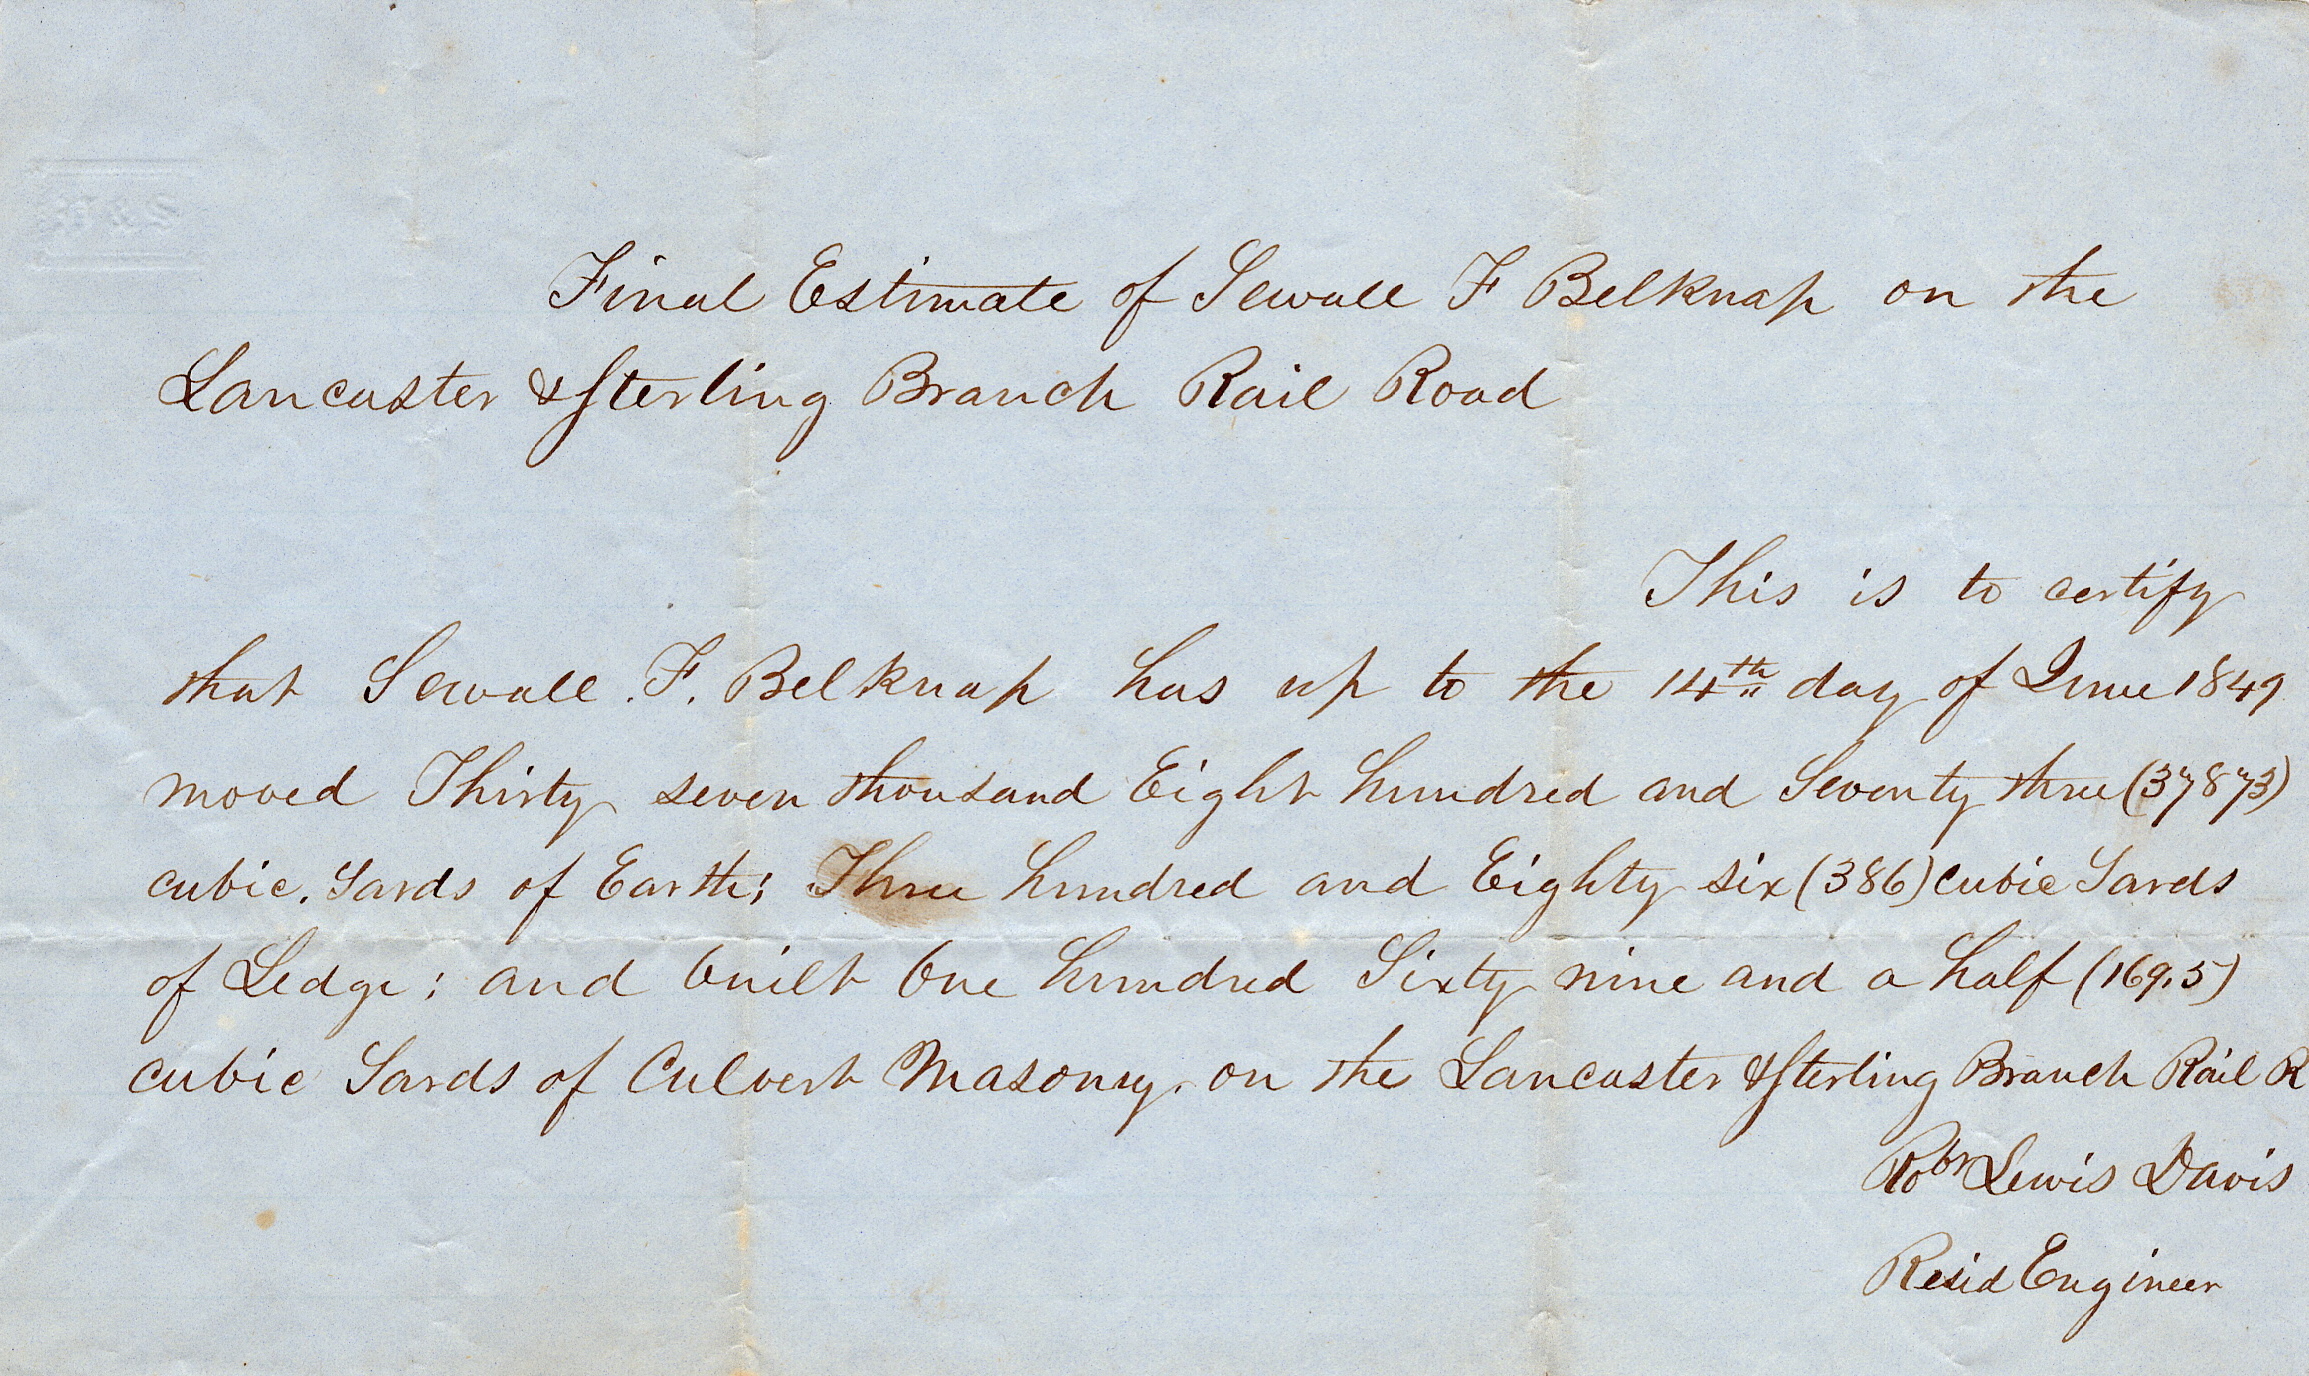 Final Estimate of Sewall F Belknap on the
Lancaster & Sterling Branch Rail Road
This is to certify
that Sewall. F. Belknap has up to the 14th day of June 1849
moved Thirty seven thousand Eight hundred and Seventy three (37873)
cubic. Yards of Earth; Three hundred and Eighty six (386) cubic Yards
of Ledge; and built One hundred Sixty nine and a half (169.5)
cubic Yards of Culvert Masonry. on the Lancaster & Sterling Branch Rail R
Robt Lewis Davis
Resid Engineer